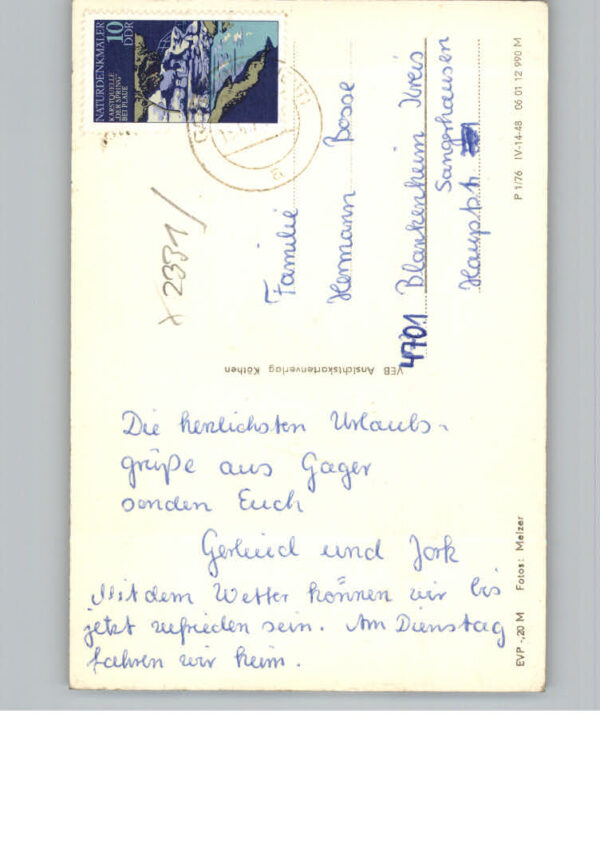 NATURDENKMÄLER
10
DDR
KARSTQUELLE
"DER SPRING"
BEI PLAUE
x 2331/
Familie
Hermann Bosse
4701 Blankenheim Kreis
Sangerhausen
Hauptstr.
P 1/76 IV-14-48 06 01 12 990 M
VEB Ansichtskartenverlag Köthen
Die herzlichsten Urlaubs-
grüße aus Gager
senden Euch
Gerlind und Jork
Mit dem Wetter können wir bis
jetzt zufrieden sein. Am Dienstag
fahren wir heim.
EVP -,20 M Fotos: Melzer